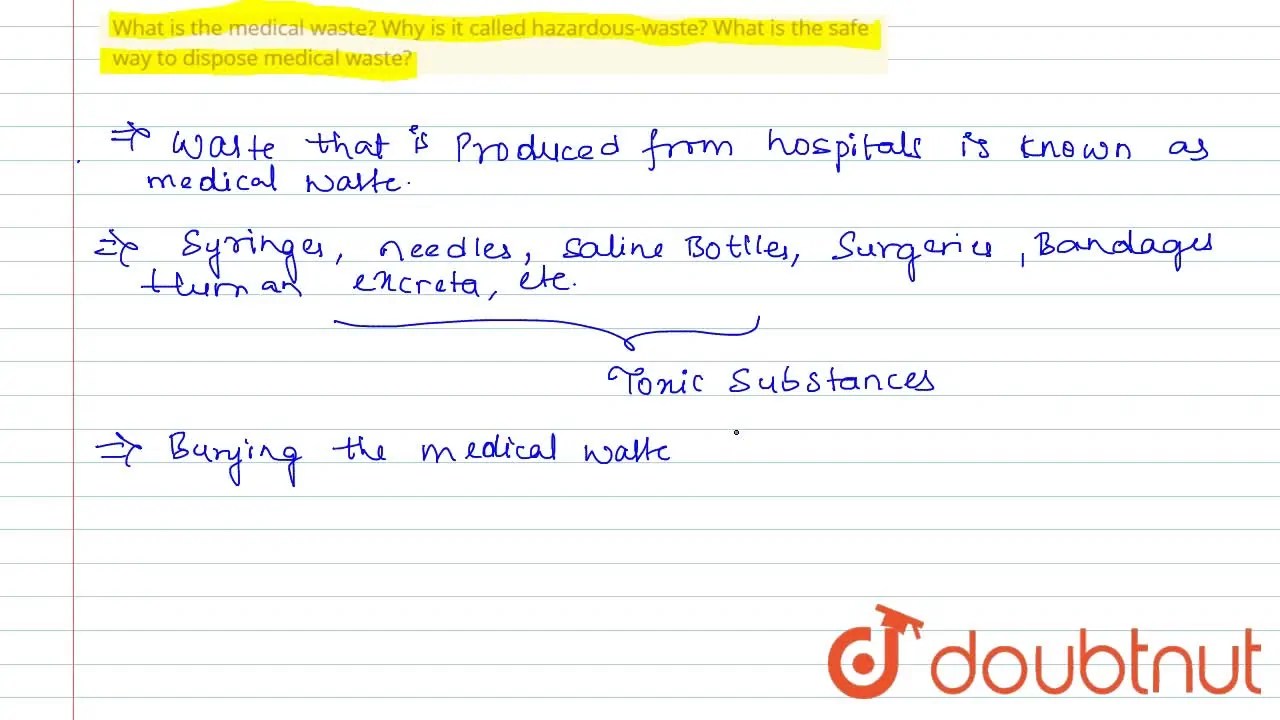 What is the medical waste? Why is it called hazardous-waste? What is the safe
way to dispose medical waste?
⇒ Waste that is Produced from hospitals is known as
medical waste.
⇒ Syringes, needles, Saline Bottles, Surgeries, Bandages
Human excreta, etc.
Toxic Substances
⇒ Burying the medical waste
doubtnut